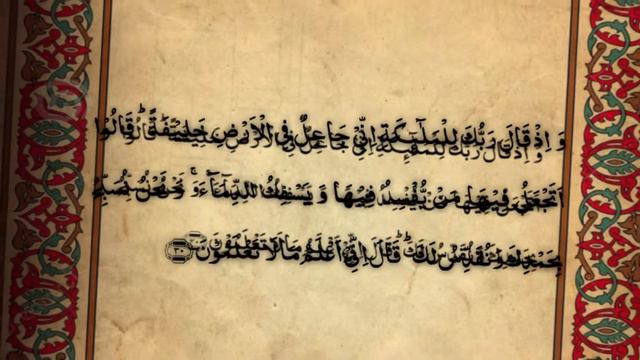 وَإِذْ قَالَ رَبُّكَ لِلْمَلَٰٓئِكَةِ إِنِّي جَاعِلٌ فِي الْأَرْضِ خَلِيفَةً ۖ قَالُوا
أَتَجْعَلُ فِيهَا مَنْ يُفْسِدُ فِيهَا وَيَسْفِكُ الدِّمَاءَ ۚ وَنَحْنُ نُسَبِّحُ
بِحَمْدِكَ وَنُقَدِّسُ لَكَ ۖ قَالَ إِنِّي أَعْلَمُ مَا لَا تَعْلَمُونَ ٣٠